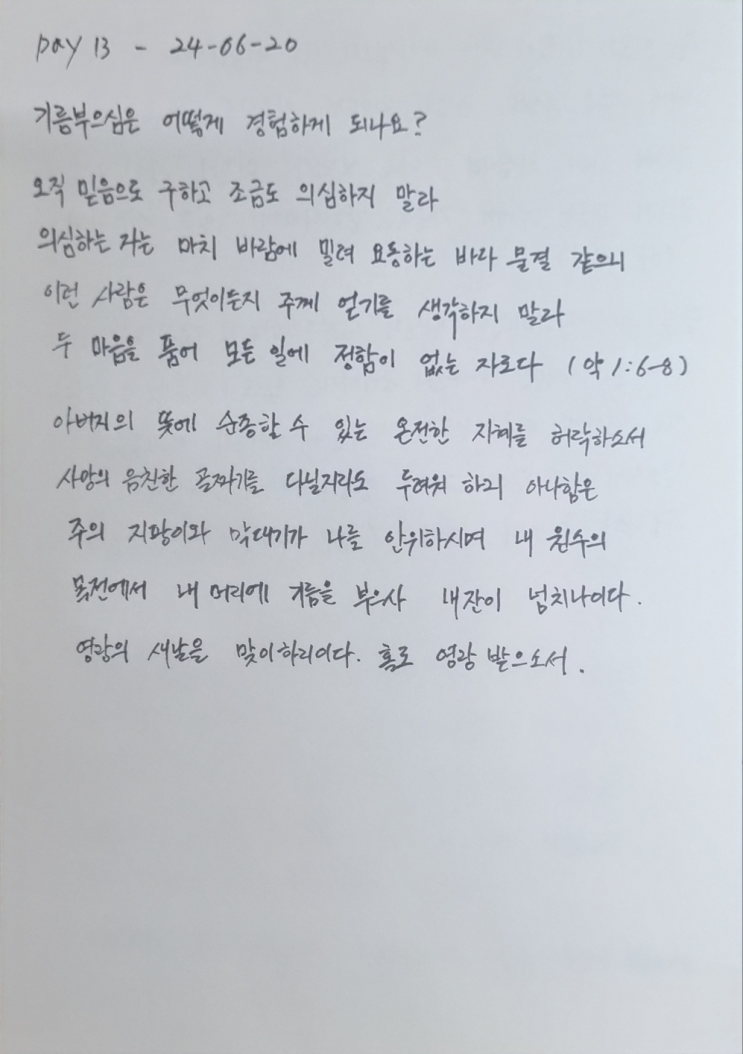 Day 13 - 24-06-20
기름부으심은 어떻게 경험하게 되나요?
오직 믿음으로 구하고 조금도 의심하지 말라
의심하는 자는 마치 바람에 밀려 요동하는 바다 물결 같으니
이런 사람은 무엇이든지 주께 얻기를 생각하지 말라
두 마음을 품어 모든 일에 정함이 없는 자로다 (약 1:6-8)
아버지의 뜻에 순종할 수 있는 온전한 지혜를 허락하소서
사망의 음친한 골짜기를 다닐지라도 두려워 하지 아니함은
주의 지팡이와 막대기가 나를 안위하시며 내 원수의
목전에서 내 머리에 기름을 부으사 내잔이 넘치나이다.
영광의 새날을 맞이하리이다. 홀로 영광 받으소서.